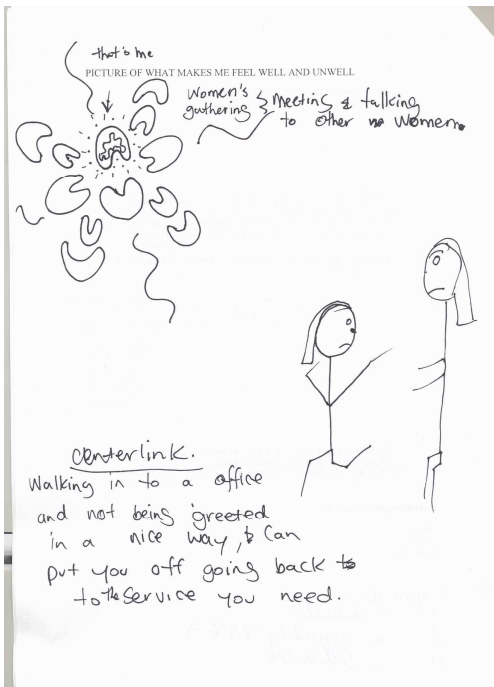 that's me
PICTURE OF WHAT MAKES ME FEEL WELL AND UNWELL
women's
gathering } Meeting & talking
to other women.
centerlink.
Walking in to a office
and not being greeted
in a nice way, & Can
put you off going back
to the Service you need.